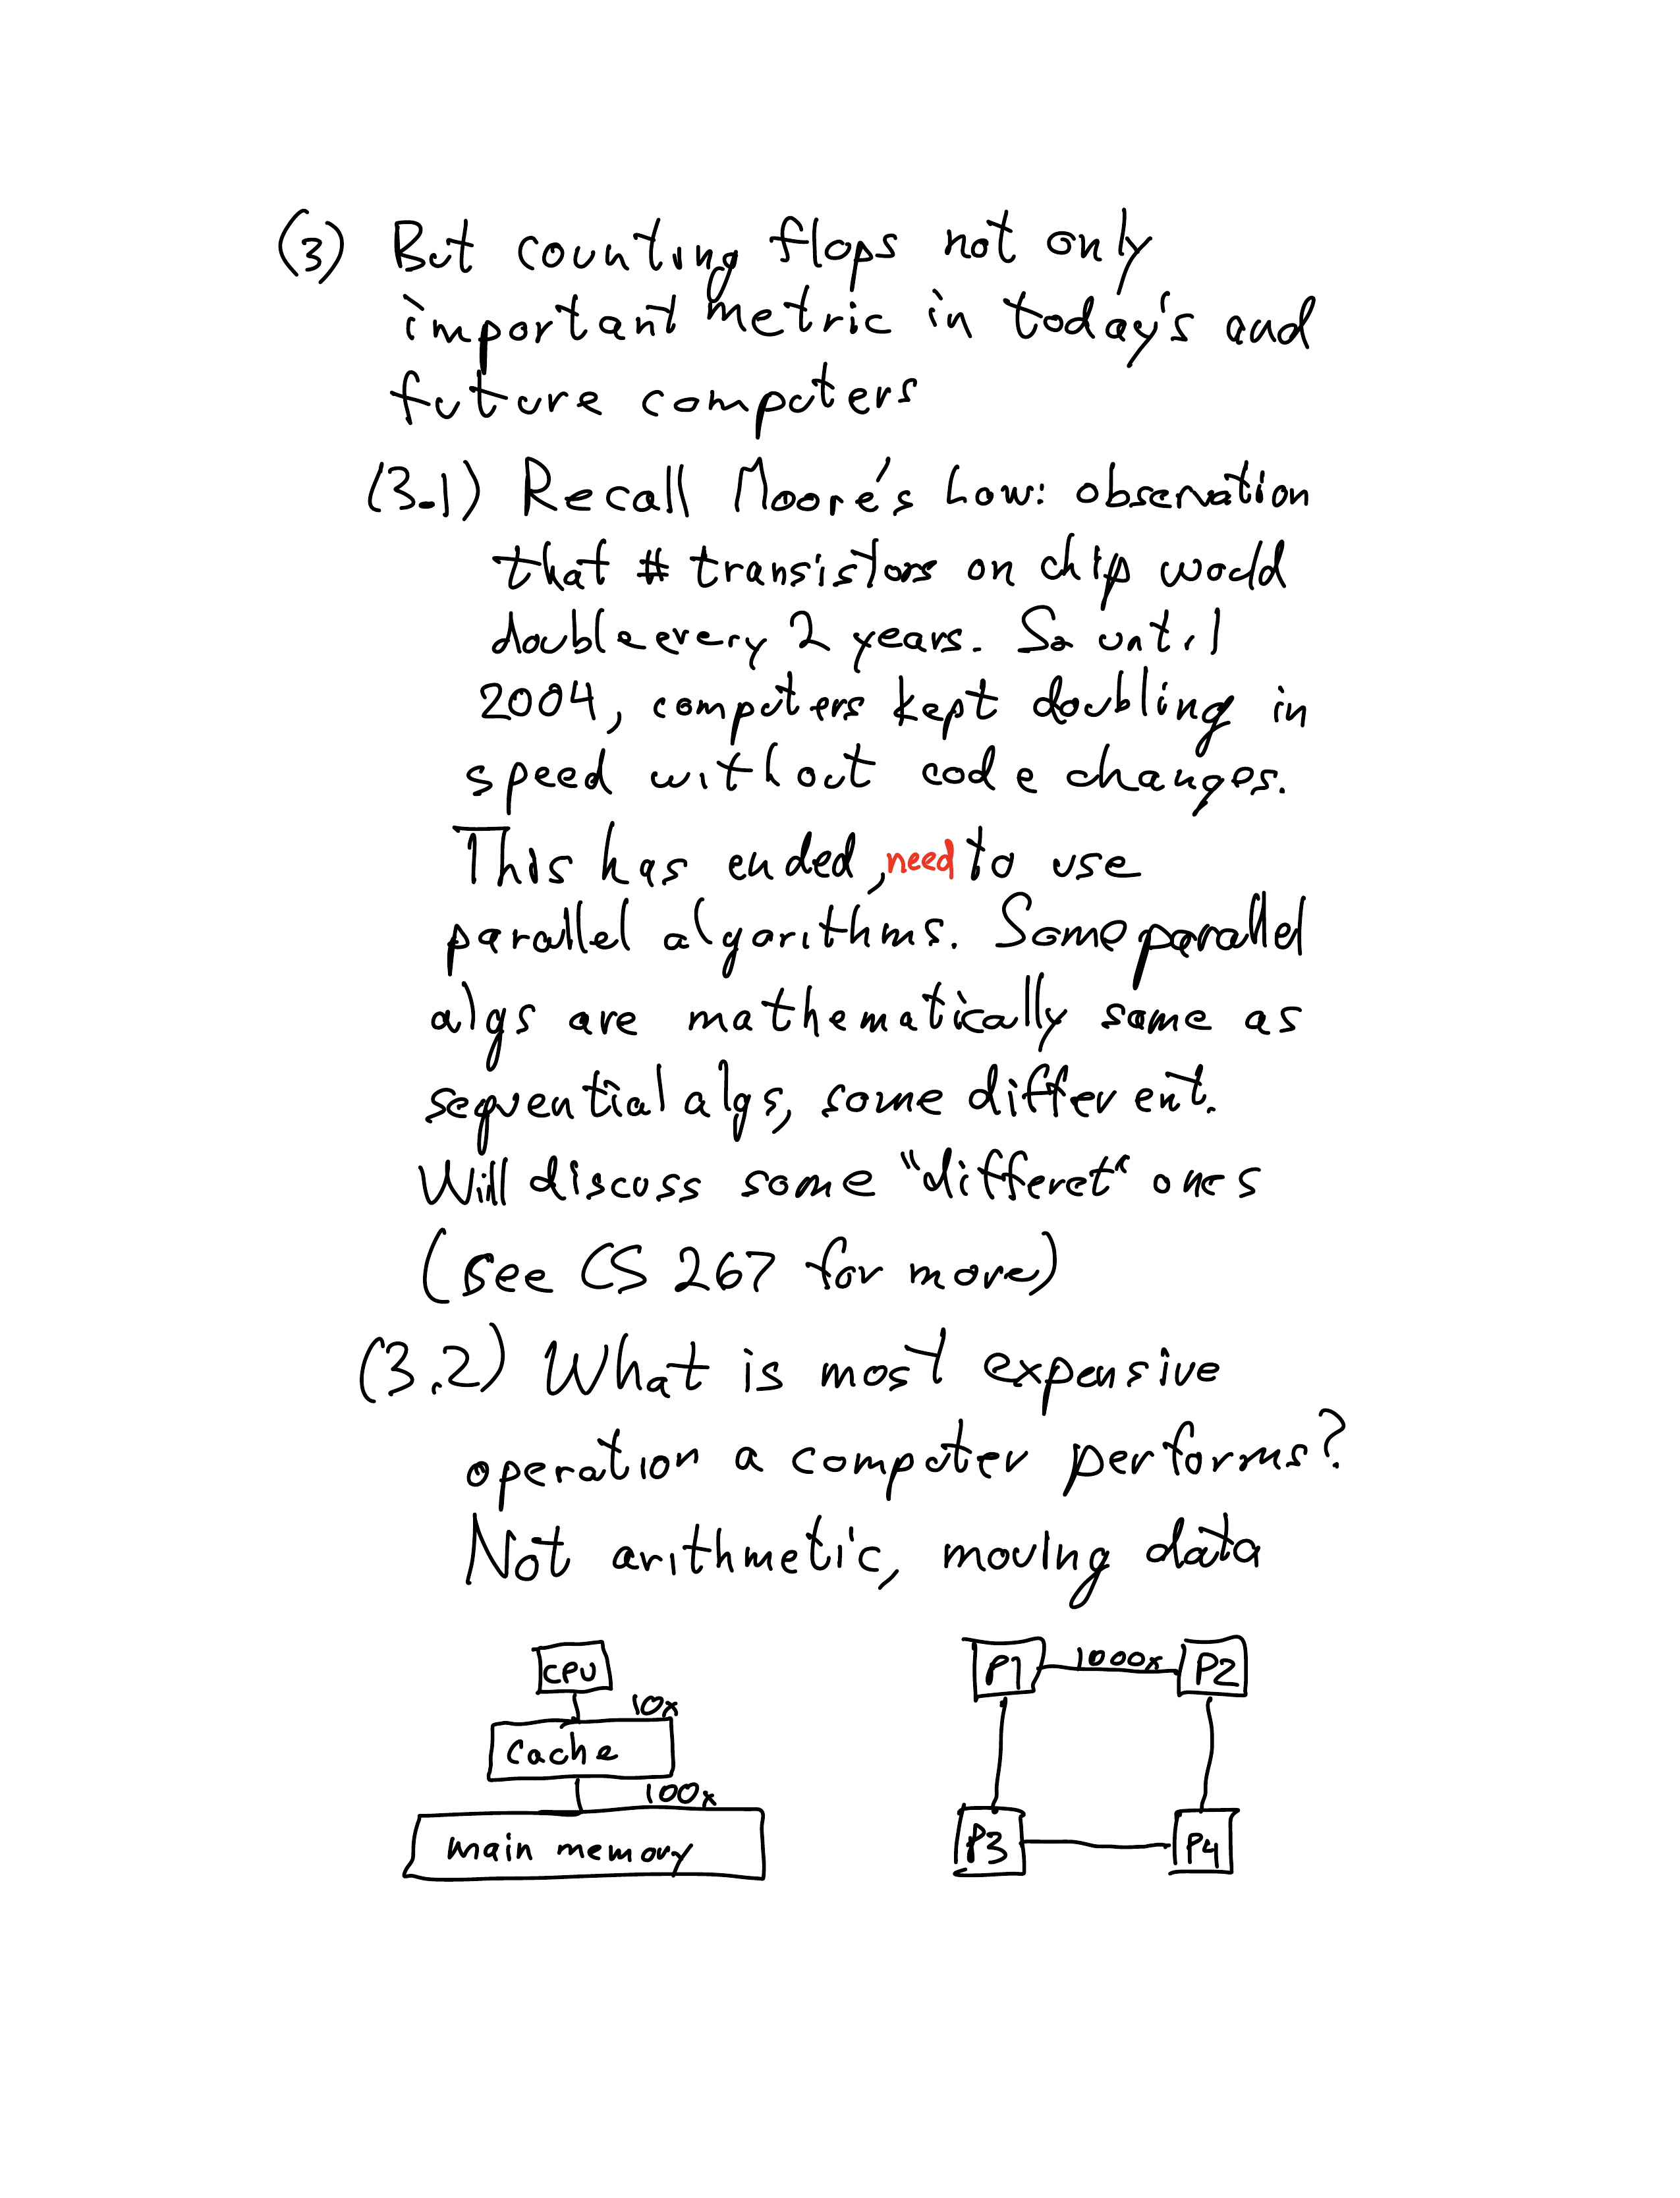 (3) But counting flops not only
important metric in today's and
future computers
(3.1) Recall Moore's Law: observation
that # transistors on chip would
double every 2 years. So until
2004, computers kept doubling in
speed without code changes.
This has ended, need to use
parallel algorithms. Some parallel
algs are mathematically same as
sequential algs, some different.
Will discuss some "differet" ones
(see CS 267 for more)
(3.2) What is most expensive
operation a computer performs?
Not arithmetic, moving data
CPU
10x
Cache
100x
main memory
P1 1000x P2
P3 P4